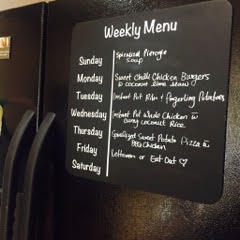 Weekly Menu
Sunday
Spiralized Pierogie
Soup
Monday
Sweet Chili Chicken Burgers
w/ coconut lime slaw
Tuesday
Instant Pot Ribs + Fingerling Potatoes
Wednesday
Instant Pot whole Chicken w/
curry coconut Rice
Thursday
Spiralized Sweet Potato Pizza w/
BBQ Chicken
Friday
Leftovers or Eat Out ♡
Saturday